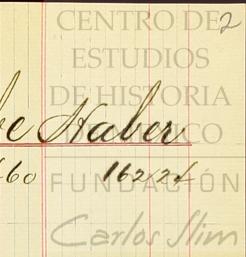 CENTRO DE 2
ESTUDIOS
DE HISTORIA
be Haber
CO
60 162 24
FUNDACIÓN
Carlos Slim